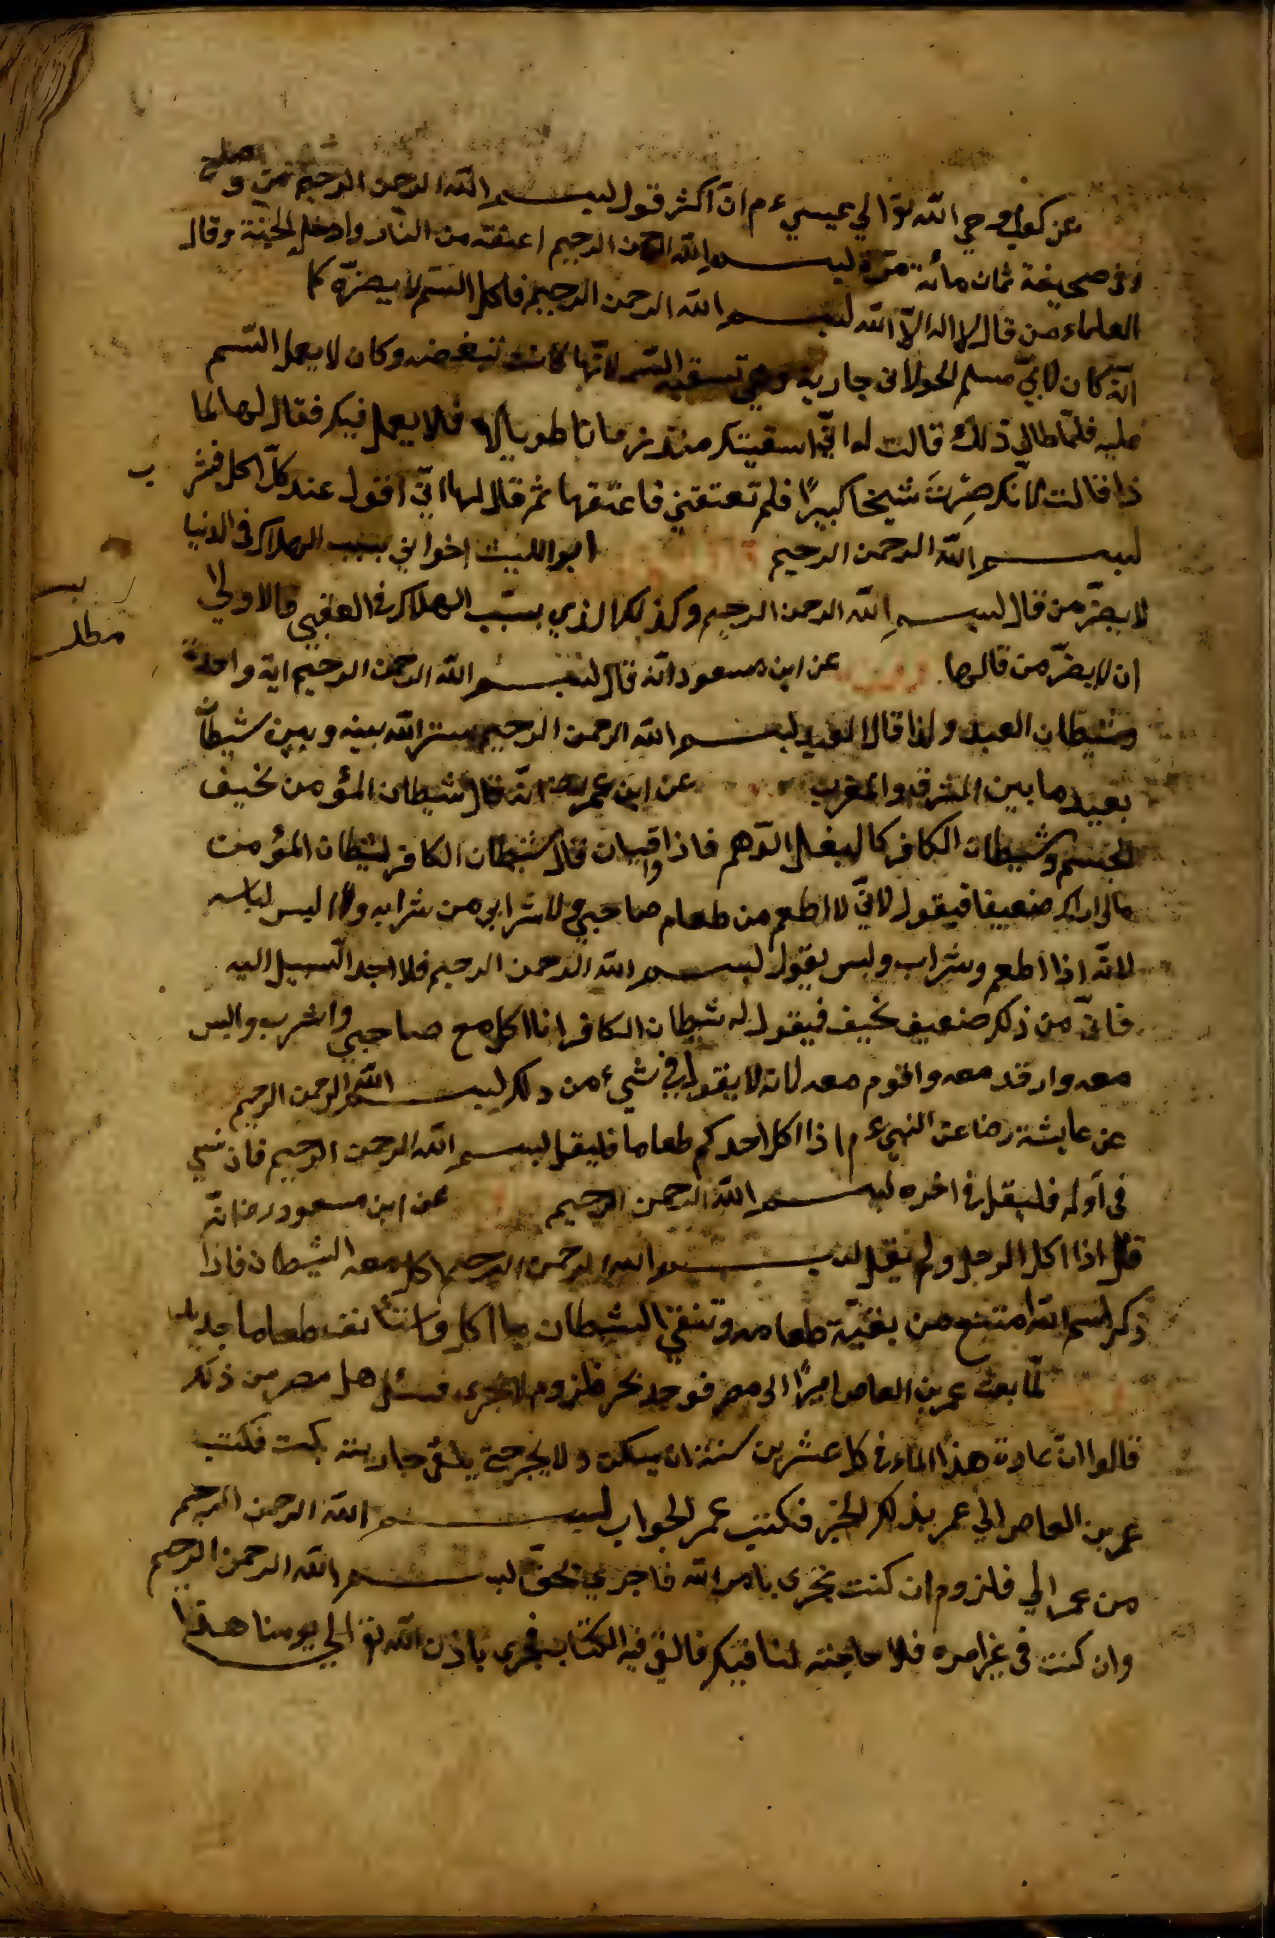 عن كعب وحي الله تو الي عيسيء م ان اكثر قول لبسم الله الرحمن الرحيم فمن
وفى صحيفة ثمان مائة مرّة لبسم الله الرحمن الرحيم اعتقته من النار وادخل الجنة وقال
العلماء من قال لا اله الا الله لبسم الله الرحمن الرحيم فاكل السّم لا يضرّه كما
انّه كان لابيّ مسلم الخولانى جارية وهي تسقيه السّم لانّها كانت تبغضه وكان لا يعمل السّم
عليه فلمّا طال ذلك قالت له انّي اسقيتك منذ زمانا طويلا فلا يعمل فيك فقال لها لما
ذا قالت لانّك صِرْتَ شيخا كبيرًا فلم تعتقني فاعتقها ثم قال لها انّي اقول عند كلّ اكل وشر
ب
لبسم الله الرحمن الرحيم ابو الليث اخواني بسبب الهلاك فى الدنيا
لا يضرّ من قال لبسم الله الرحمن الرحيم وكذلك الذي بسبّب الهلاك فى العقبي فالاولي
ان لا يضرّ من قالها عن ابن مسعود انّه قال لبسم الله الرحمن الرحيم اية واحدة
مطلب
وشيطان العبد واذا قال العبد لبسم الله الرحمن الرحيم ستر الله بينه وبين شيطان
بعيد ما بين المشرق والمغرب عن ابن عمر رض انّه قال شيطان المؤمن نحيف
الجسم وشيطان الكافر كالبغل الدّهم فاذا واقيان قال شيطان الكافر لشيطان المؤمن
مالى اراك ضعيفا فيقول لانّي لا اطعم من طعام صاحبي ولا شرابي من شرابه ولا اليس لباسه
لانّه اذا اطعم وشراب وليس يقول لبسم الله الرحمن الرحيم فلا اجد السّبيل اليه
فانّي من ذلك ضعيف نحيف فيقول له شيطان الكافر انا اكل مع صاحبي واشرب واليس
معه وارقد معه واقوم معه لانه لا يقول في شيء من ذلك لبسم الله الرحمن الرحيم
عن عايشة رضا عن النبيء م اذا اكل احدكم طعاما فليقل لبسم الله الرحمن الرحيم فان نسي
فى أوله فليقل فى اخره لبسم الله الرحمن الرحيم عن ابن مسعود رضا انّه
قال اذا اكل الرجل ولم يقل لبسم الله الرحمن الرحيم اكل معه الشيطان فاذا
ذكر اسم الله امتنع من بقيّة طعامه وتنقي الشيطان ما اكل طعاما جديدا
لمّا بعث عمر بن العاص اميرًا الى مصر فوجد بحر قلزوم لا يجرى فسئل اهل مصر من ذلك
قالوا انّ عادة هذا الماء فى كل عشرين سنة ان يسكن ولا يجرى حتي يلقى جارية بكت فكتب
عمر بن العاص الي عمر بذلك الخبر فكتب عمر الجواب لبسم الله الرحمن الرحيم
من عمر الي قلزوم ان كنت تجرى بامر الله فاجري بحقّ لبسم الله الرحمن الرحيم
وان كنت فى غير امره فلا حاجة لنا فيك فالقى فيه الكتاب فجرى باذن الله تو الي يومنا هذا